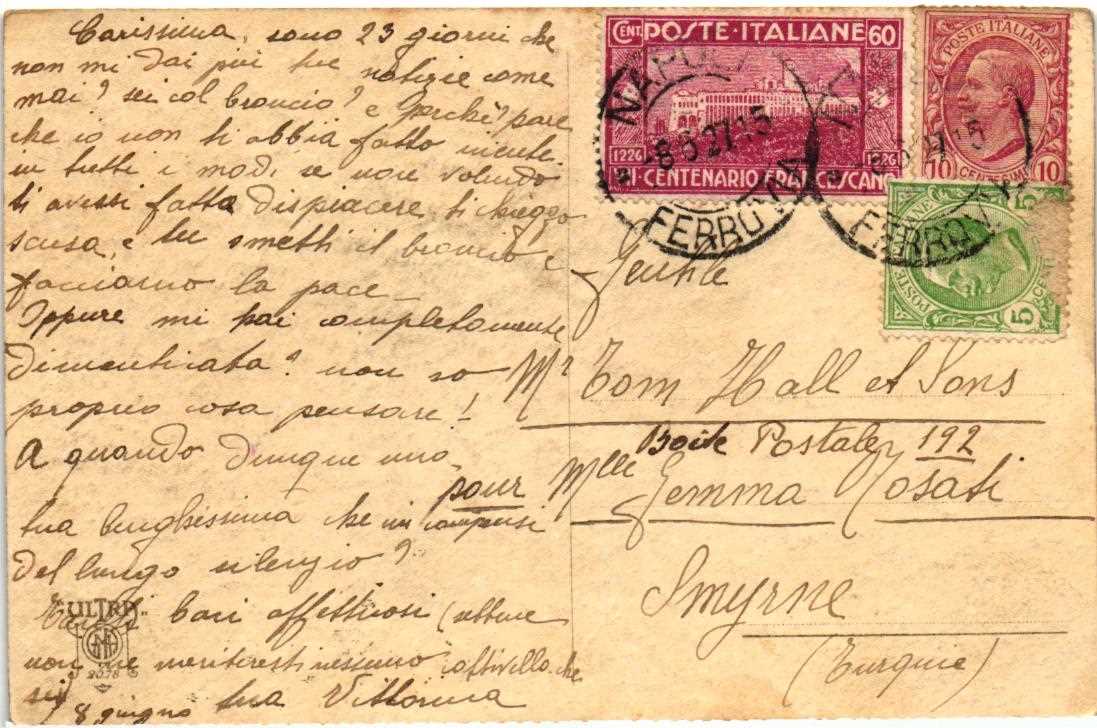 Carissima, sono 23 giorni che
non mi dai più tue notizie come
mai? sei col broncio? e perchè? pare
che io non ti abbia fatto niente.
in tutti i modi se non volendo
ti avessi fatto dispiacere ti chieggo
scusa, e tu smetti il broncio e
facciamo la pace_
Oppure mi hai completamente
dimenticata? non so
proprio cosa pensare!
A quando dunque una
tua lunghissima che mi compensi
del lungo silenzio?
baci affettuosi (ebbene
non ne meriteresti nessuno cattivella che
sei) tua Vittorina
8 giugno
"ULTRA"
2078
CENT. POSTE·ITALIANE 60
1226 1926
VII·CENTENARIO FRANCESCANO
POSTE ITALIANE
10 CENTESIMI 10
POSTE ITALIANE
5 CENT. 5
NAPOLI
8 6 27 15
FERROVIA
FERROVIA
Gentile
Mr Tom Hall et Sons
Boite Postale 192
pour Mlle Gemma Rosati
Smyrne
(Turquie)